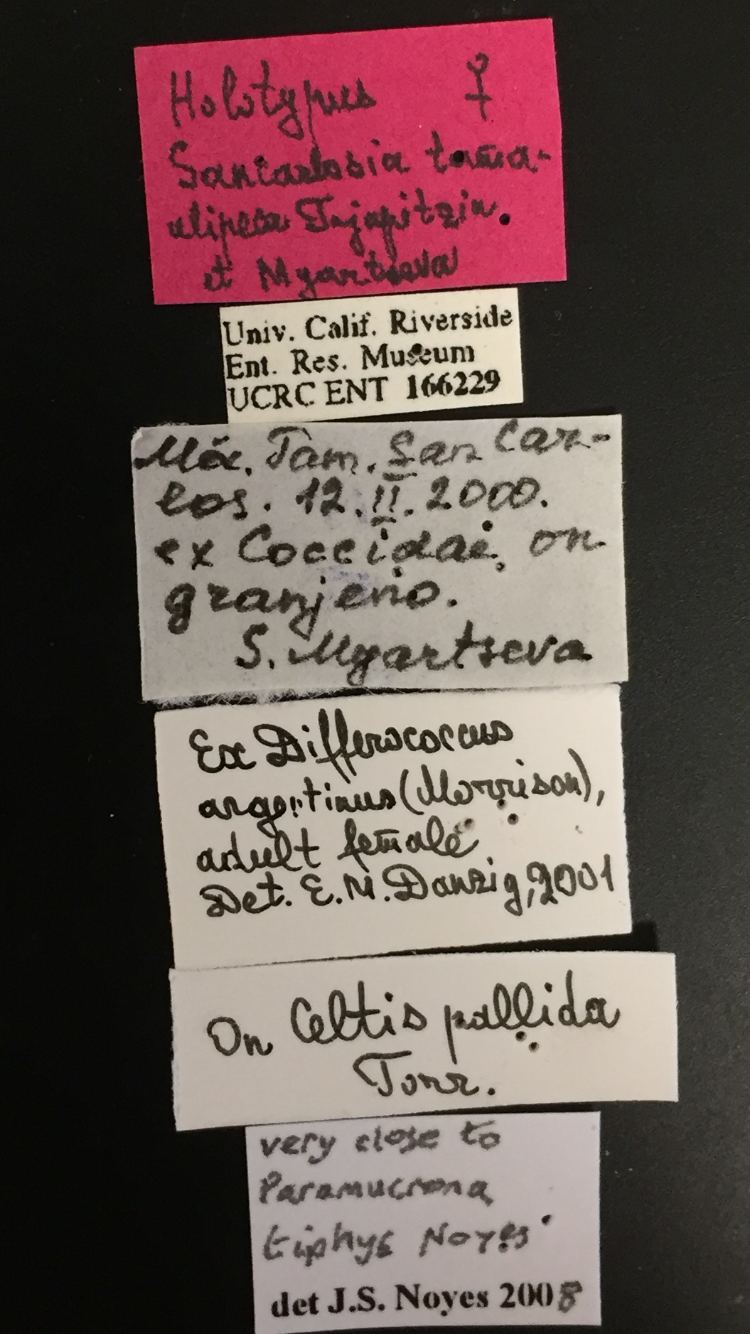 Holotypus ♀
Sancarlosia tama-
ulipeca Trjapitzin
et Myartseva
Univ. Calif. Riverside
Ent. Res. Museum
UCRC ENT 166229
Méx. Tam. San Car-
los. 12.II.2000.
ex Coccidae, on
granjeno.
S. Myartseva
Ex Differococcus
argentinus (Morrison),
adult female
Det. E.M. Danzig, 2001
On Celtis pallida
Torr.
very close to
Paramucrona
tiphys Noyes
det J.S. Noyes 2008